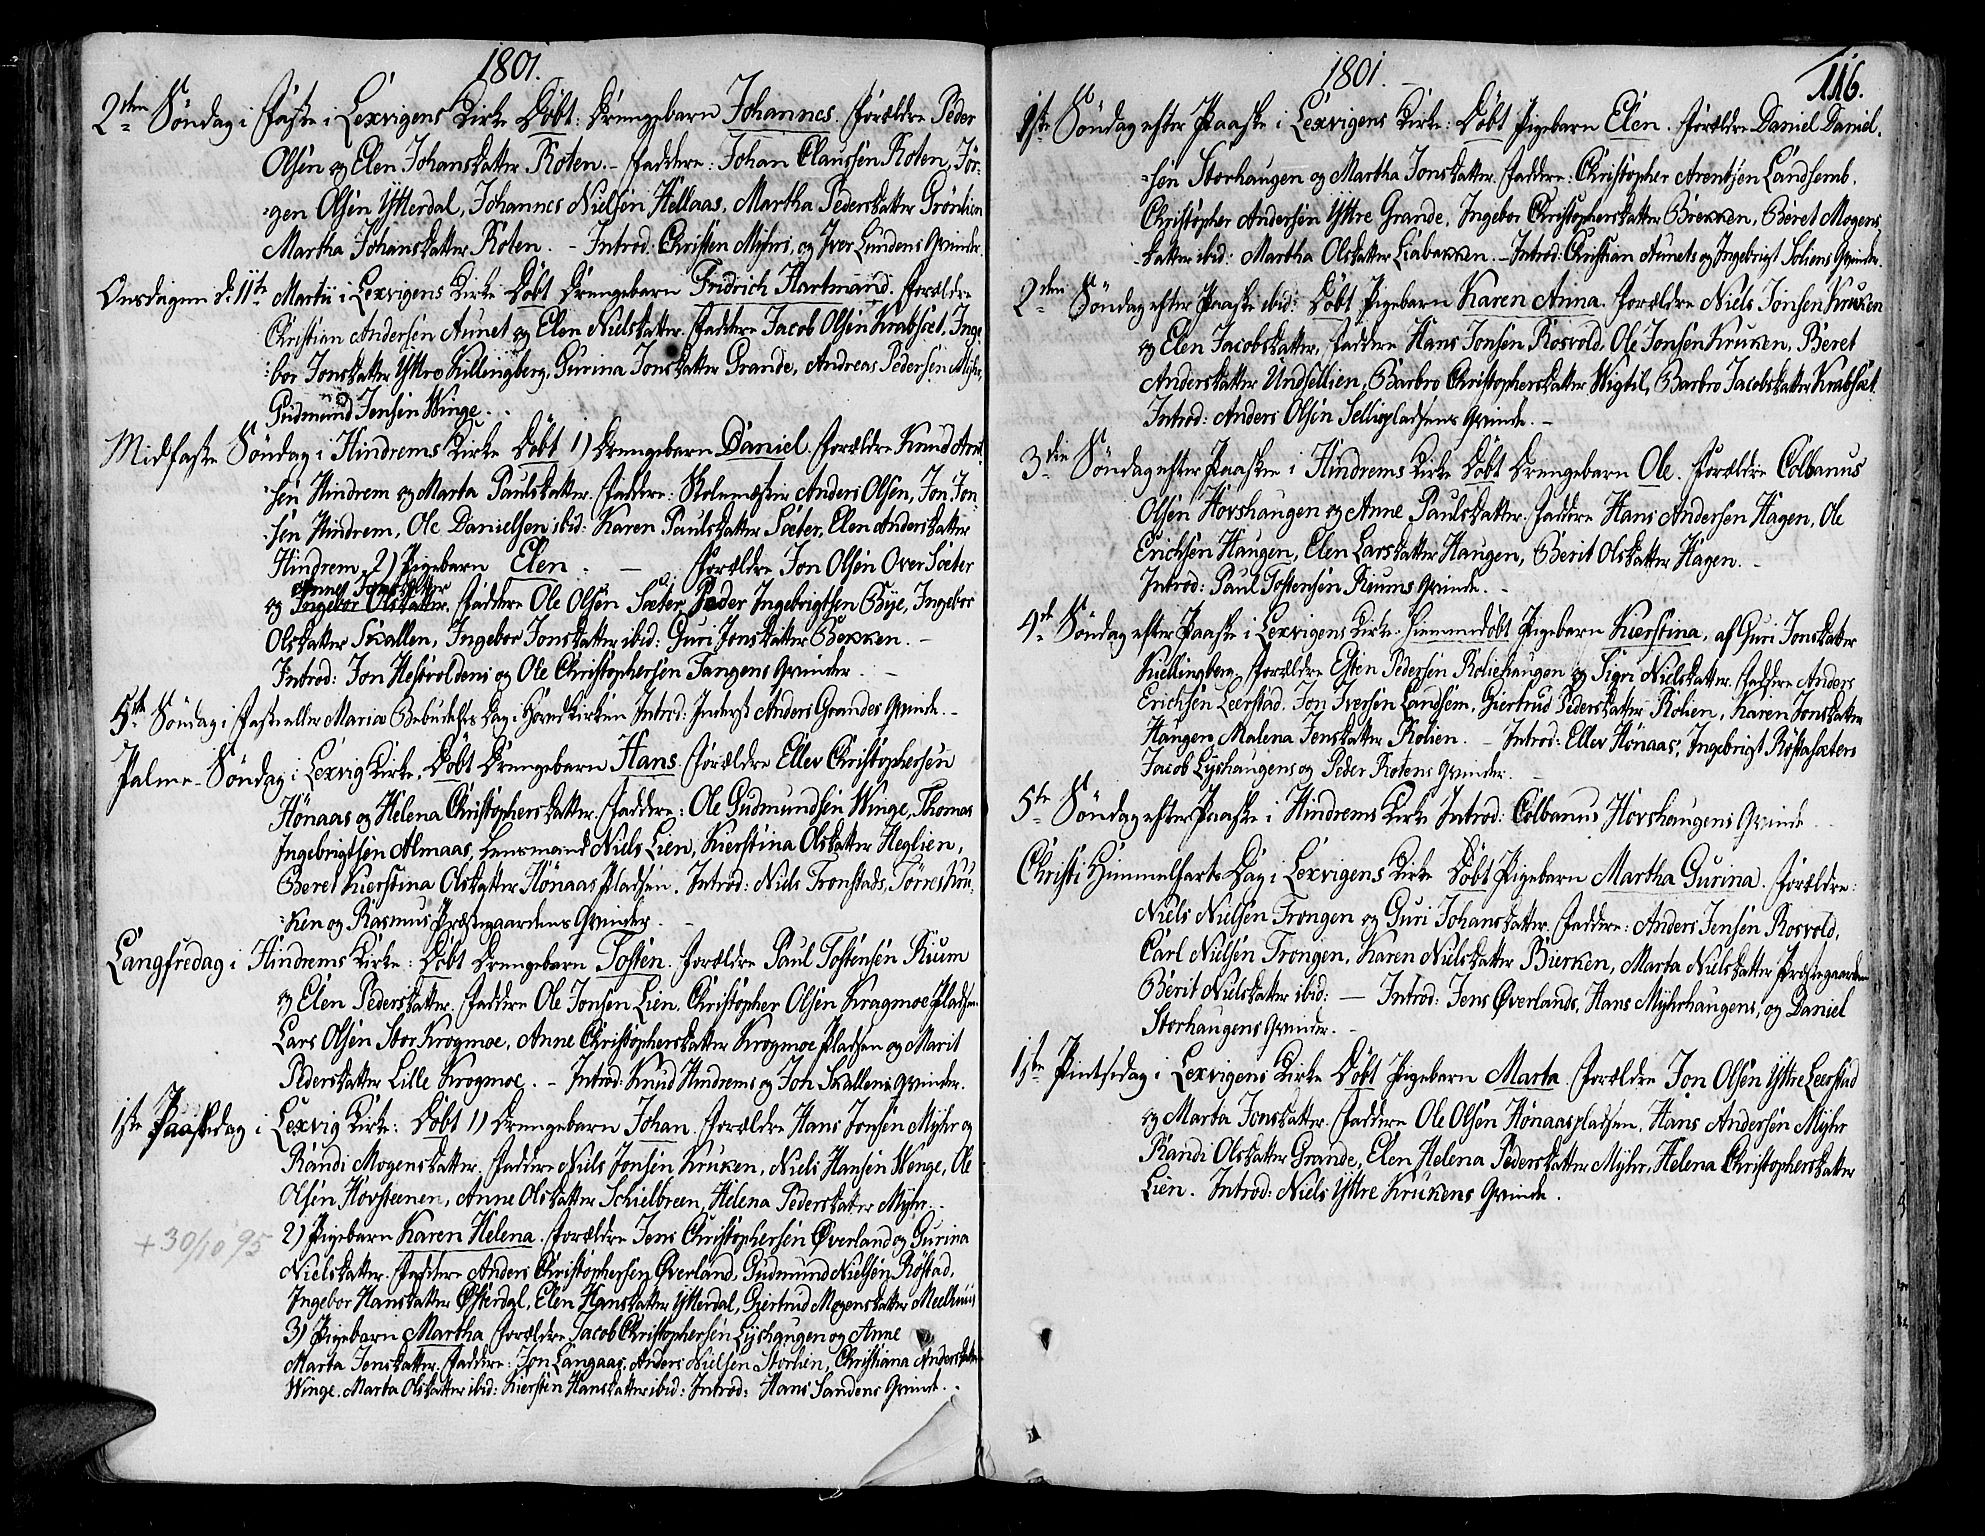 1801.
2den Søndag i Faste i Lexvigens Kirke Døbt: Drengebarn Johannes. Forældre Peder
Olsen og Elen Johansdatter Roten. - Faddere: Johan Clausen Roten, Jör-
gen Olsen Ytterdal, Johannes Nielsen Hellaas, Martha Pedersdatter Grönlien
Martha Johansdatter Roten. - Introd: Christen Myhrs, og Iver Lundens Qvinder.
Onsdagen d: 11te Martii i Lexvigens Kirke Døbt Drengebarn Fridrich Hartmand. Forældre
Christian Andersen Aunet og Elen Nielsdatter. Faddere Jacob Olsen Krabsæt, Inge-
bor Jonsdatter Yttre Killingberg, Gurina Jonsdatter Grande, Andreas Pedersen Myhr,
Gudmund Jensen Winge.
Midfaste Søndag i Hindrems Kirke Døbt 1) Drengebarn Daniel. Forældre Knud Arnt-
sen Hindrem og Marta Paulsdatter. Faddere: Skolemester Anders Olsen, Jon Jon-
sen Hindrem, Ole Danielsen ibid: Karen Paulsdatter Sæter, Elen Andersdatter
Hindrem. 2) Pigebarn Elen. - Forældre Jon Olsen Over Sæter
Anne Jonsdatter
og Ingebor Olsdatter. Faddere Ole Olsen Sæter, Peder Ingebrigtsen Bye, Ingebor
Olsdatter Skallen, Ingebor Jonsdatter ibid: Guri Jonsdatter Bekken. -
Introd: Jon Hestvoldens og Ole Christophersen Tangens Qvinder. -
5te Søndag i Faste eller Mariæ Bebudelses Dag i Hoved Kirken Introd: Inderst Anders Grandes Qvinde. -
Palme-Søndag i Lexvig Kirke. Døbt Drengebarn Hans. Forældre Ellev Christophersen
Hönaas og Helena Christophersdatter. Faddere: Ole Gudmundsen Winge, Thomas
Ingebrigtsen Almaas, Lensmand Niels Lien, Kierstina Olsdatter Heglien,
Beret Kierstina Olsdatter Hönaas Pladsen. Introd: Niels Tronstads, Törres Kru-
ken og Rasmus Præstegaardens Qvinder. -
Langfredag i Hindrems Kirke: Døbt Drengebarn Tosten. Forældre Paul Tostensen Rium
og Elen Pedersdatter. Faddere Ole Jonsen Lien, Christopher Olsen Kragmoe Pladsen
Lars Olsen Stor Krogmoe, Anne Christophersdatter Krogmoe Pladsen og Marit
Pedersdatter Lille Krogmoe. - Introd: Knud Hindrems og Jon Skallens Qvinder.
1ste Paaskedag i Lexvig Kirke: Døbt 1) Drengebarn Johan. Forældre Hans Jonsen Myhr og
Randi Mogensdatter. Faddere Niels Jonsen Kruken, Niels Hansen Wenge, Ole
Olsen Hovsteenen, Anne Olsdatter Schielbreen, Helena Pedersdatter Myhr. -
+ 30/10 95
2) Pigebarn Karen Helena. Forældre Jens Christophersen Øverland og Gurina
Nielsdatter. Faddere Anders Christophersen Øverland, Gudmund Nielsen Röstad,
Ingebor Hansdatter Østerdal, Elen Hansdatter Ytterdal, Giertrud Mogensdatter Meelhuus
3) Pigebarn Martha Forældre Jacob Christophersen Lyshaugen og Anne
Marta Jensdatter. Faddere: Jon Langaas, Anders Nielsen Storlien, Christiana Andersdatter
Winge. Marta Olsdatter ibid: Kiersten Hansdatter ibid: Introd: Hans Sandens Qvinde. -
1801. -
116.
1ste Søndag efter Paaske i Lexvigens Kirke: Døbt Pigebarn Elen. Forældre Daniel Daniel-
sen Storhaugen og Martha Jonsdatter. Faddere: Christopher Arentsen Landsemb.
Christopher Andersen Yttre Grande, Ingebor Christophersdatter Brekken, Beret Mogens-
datter ibid: Martha Olsdatter Liabakken. - Introd: Christian Aunets og Ingebrigt Soliens Qvinder.
2den Søndag efter Paaske ibid: Døbt Pigebarn Karen Anna. Forældre Niels Jonsen Kruken
og Elen Jacobsdatter, Faddere Hans Jonsen Rosvold, Ole Jonsen Kruken, Beret
Andersdatter Undsellien, Barbro Christophersdatter Wigtil, Barbro Jacobsdatter Krabsæt.
Introd: Anders Olsen Sellipladsens Qvinde. -
3die Søndag efter Paaske i Hindrems Kirke Døbt Drengebarn Ole. Forældre Colbanus
Olsen Hovshaugen og Anne Paulsdatter. Faddere Hans Andersen Hagen, Ole
Erichsen Haugen, Elen Larsdatter Haugen, Berit Olsdatter Hagen. -
Introd: Paul Tostensen Riums Qvinde. -
4de Søndag efter Paaske i Lexvigens Kirke. Hiemmedøbt Pigebarn Kierstina, af Guri Jonsdatter
Kiellingberg. Forældre Esten Pedersen Roliehaugen og Sigri Nielsdatter. Faddere Anders
Erichsen Leerstad, Jon Iversen Landsem, Giertrud Pedersdatter Rolien, Karen Jonsdatter
Haugen, Malena Jensdatter Rolien. - Introd: Ellev Hönaas, Ingebrigt Röstasæters
Jacob Lyshaugens og Peder Rotens Qvinder. -
5te Søndag efter Paaske i Hindrems Kirke Introd: Colbanus Hovshaugens Qvinde.
Christi Himmelfarts Dag i Lexvigens Kirke Døbt Pigebarn Martha Gurina. Forældre:
Niels Nielsen Trongen og Guri Johansdatter. Faddere: Anders Jensen Rosvold,
Carl Nielsen Trongen, Karen Nielsdatter Bierken, Marta Nielsdatter Præstegaarden
Berit Nielsdatter ibid: - Introd: Jens Øverlands, Hans Myhrhaugens, og Daniel
Storhaugens Qvinder. -
1ste Pintsedag i Lexvigens Kirke Døbt Pigebarn Marta. Forældre Jon Olsen Yttre Leerstad
og Marta Jonsdatter. Faddere Ole Olsen Hönaaspladsen, Hans Andersen Myhr
Randi Olsdatter Grande, Elen Helena Pedersdatter Myhr, Helena Christophersdatter
Lien. Introd: Niels Yttre Krukens Qvinde.